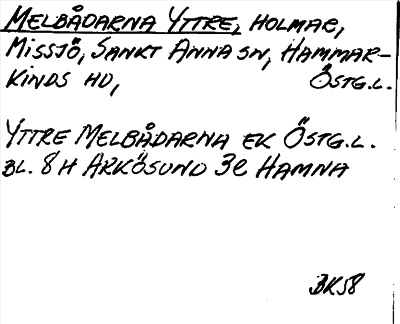 MELBÅDARNA YTTRE, HOLMAR,
MISSJÖ, SANKT ANNA SN, HAMMAR-
KINDS HD, ÖSTG.L.
YTTRE MELBÅDARNA EK ÖSTG.L.
BL. 8 H ARKÖSUND 3e HAMNA
BK58